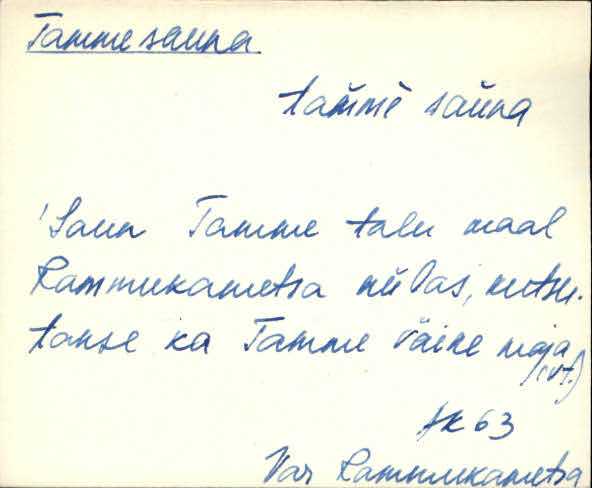 Tamme sauna
tam̆mĕ saŭna
'Saun Tamme talu maal
Rammukametsa külas, kutsu-
takse ka Tamme väike maja
(vt.)
HK 63
Var Rammukametsa